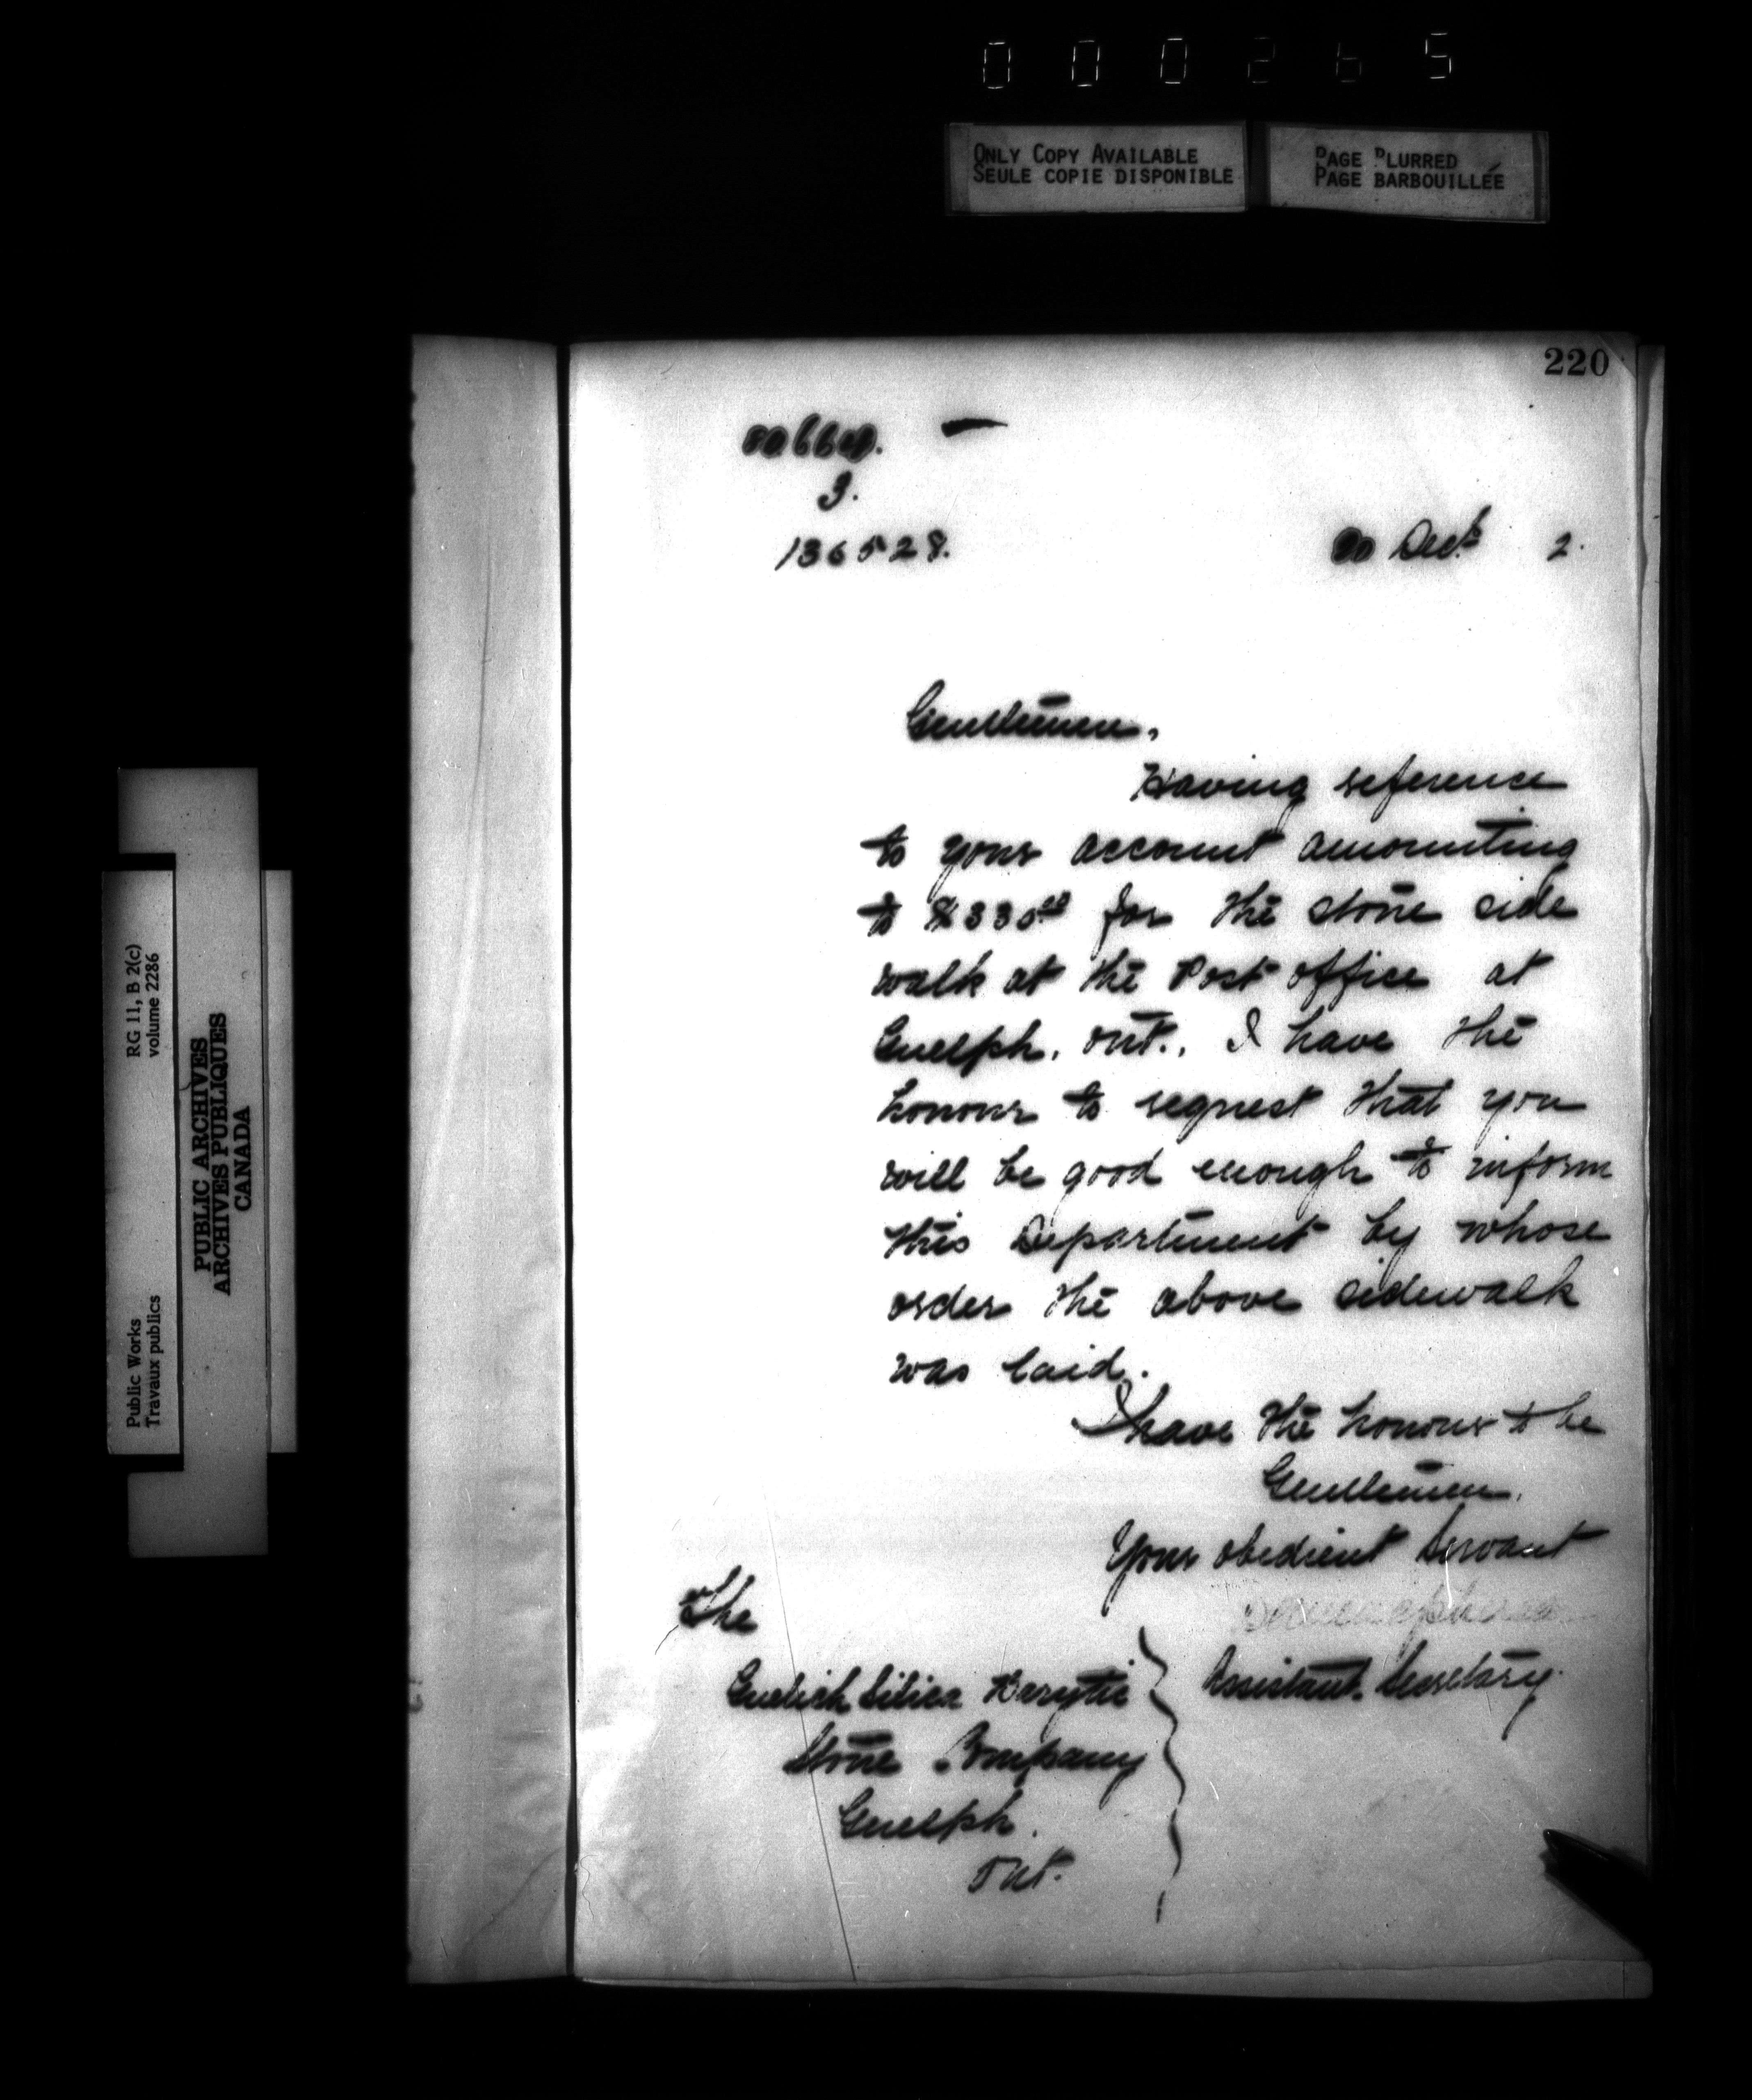 000265
ONLY COPY AVAILABLE
SEULE COPIE DISPONIBLE
PAGE BLURRED
PAGE BARBOUILLÉE
220
3.
136528.
Dec. 2.
Gentlemen,
Having reference
to your account amounting
to $330.00 for the stone side
walk at the Post office at
Guelph, Ont., I have the
honour to request that you
will be good enough to inform
this Department by whose
order the above sidewalk
was laid.
I have the honour to be
Gentlemen,
Your obedient Servant
Assistant Secretary.
The
Silica Barytic
Stone Company
Guelph.
Ont.
RG 11, B 2(c)
volume 2286
Public Works
Travaux publics
PUBLIC ARCHIVES
ARCHIVES PUBLIQUES
CANADA